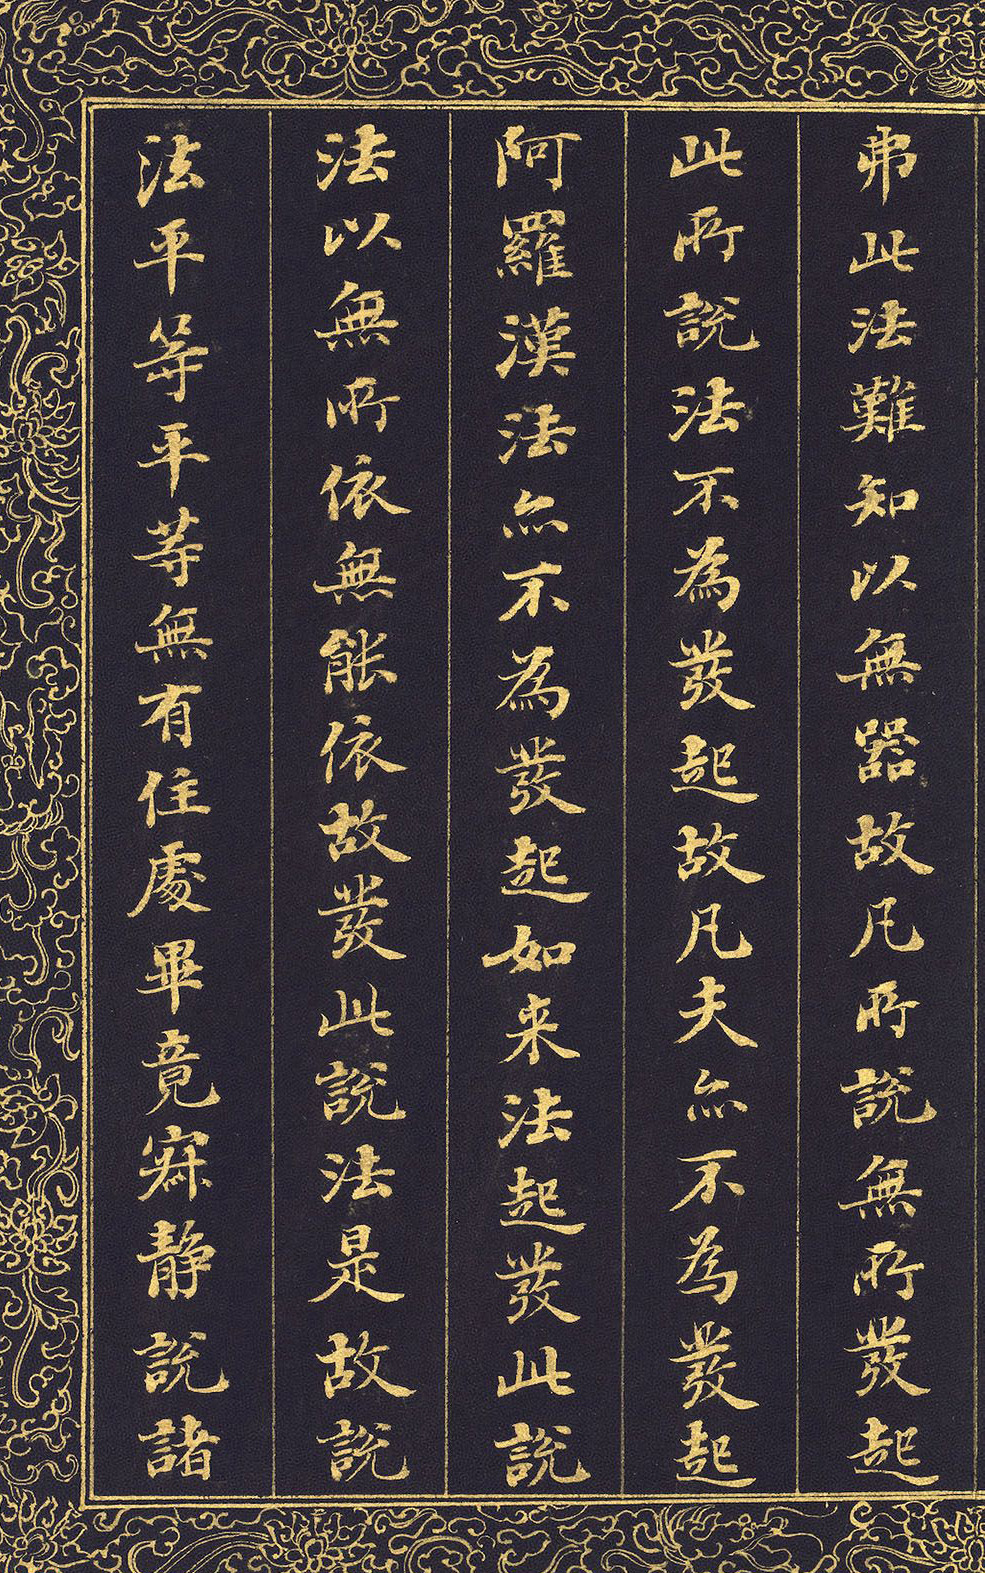 弗此法難知以無器故凡所說無所發起
此所說法不為發起故凡夫亦不為發起
阿羅漢法亦不為發起如来法起發此說
法以無所依無能依故發此說法是故說
法平等平等無有住處畢竟寂靜說諸